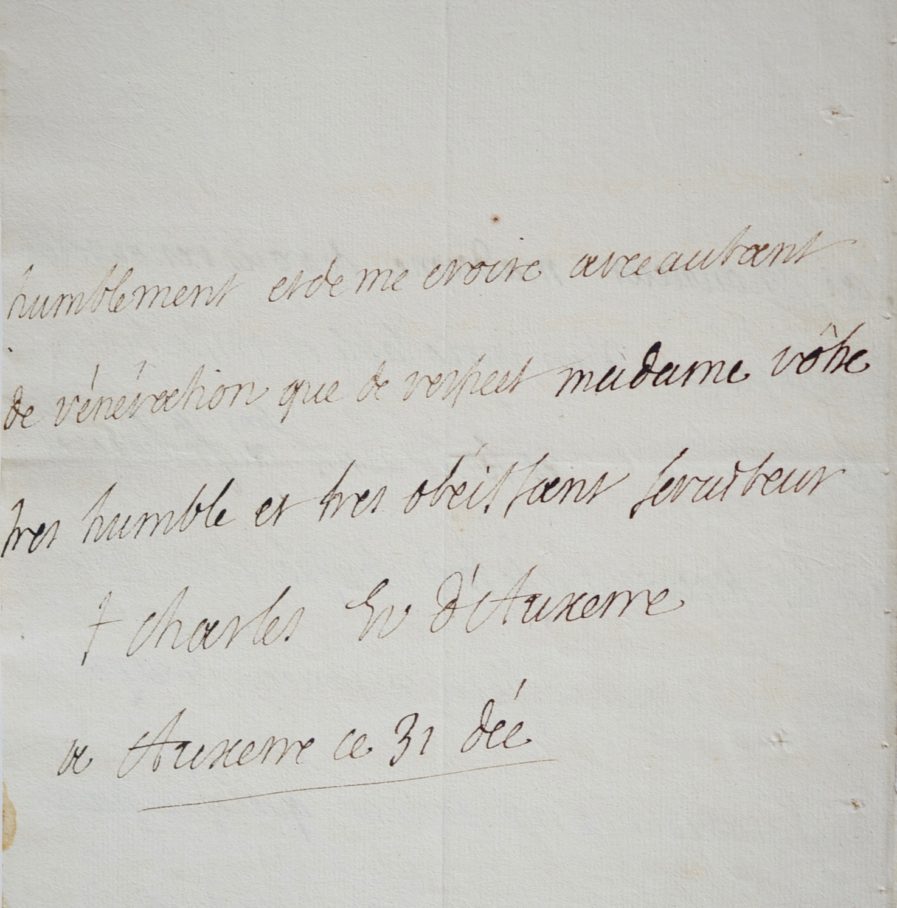 humblement et de me croire avec autant
de vénération que de respect madame vôtre
tres humble et tres obéissant serviteur
† Charles Ev d'Auxerre
a Auxerre ce 31 déc